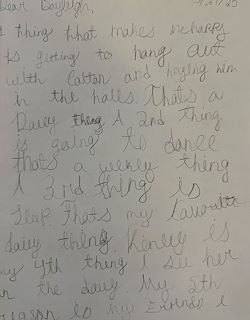 Dear Bayleigh,
thing that makes me happy
is getting to hang out
with Colton and helping him
in the halls. Thats a
Daily thing. A 2nd thing
is going to dance
thats a weekly thing
A 3rd thing is
Sleep. Thats my favorite
daily thing. Kinley is
my 4th thing I see her
in the day. My 5th
reason is my friends I